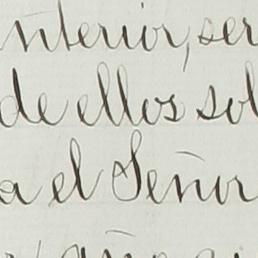 nterior, ser
de ellos sol
a el Señor